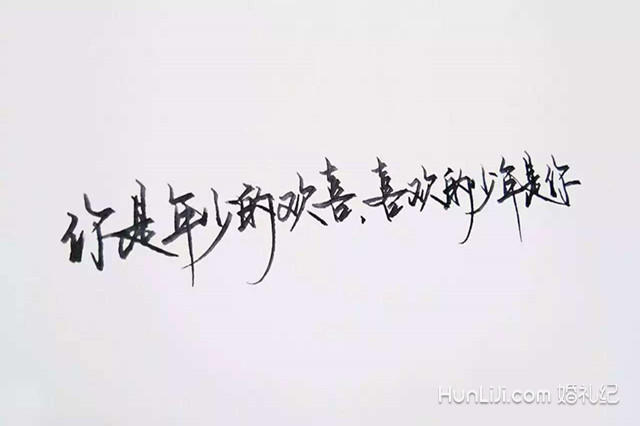 你是年少的欢喜、喜欢的少年是你
HunLiJi.com 婚礼纪